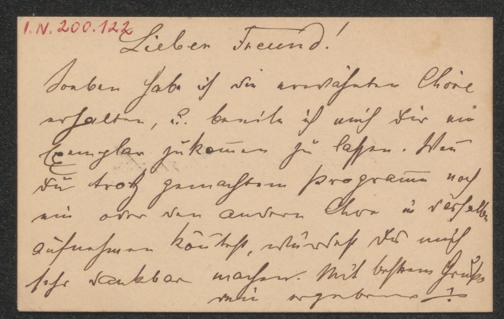 I.N. 200.122
Lieben Freund!
Soeben habe ich die erwähnten Chöre
erhalten, u. beeile ich mich Dir ein
Exemplar zukommen zu lassen. Wenn
Du trotz gemachtem Programm noch
ein oder den andern Chor in dasselbe
aufnehmen könntest, würdest Du mich
sehr dankbar machen. Mit bestem Gruß
dein ergebener